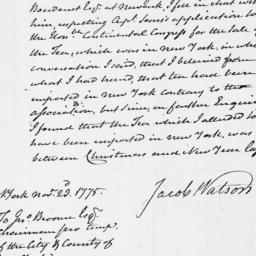 Boudenot Esqr. at Newark, I fell in chat with
him, respecting Capt. Sears's application to
the Honble Continental Congress for the Sale of
the Tea, which was in New York, in which
conversation I said, that I believed from
what I had heard, that tea had been
imported in New York contrary to the
association, but since, on farther Enquiry
I found that the Tea which I alluded to
have been imported in New York, was
between Christmas and New Year
York Novr. 23. 1775.
Jacob Watson
To Jno. Broome Esqr.
Chairman pro temp.
of the City & County of